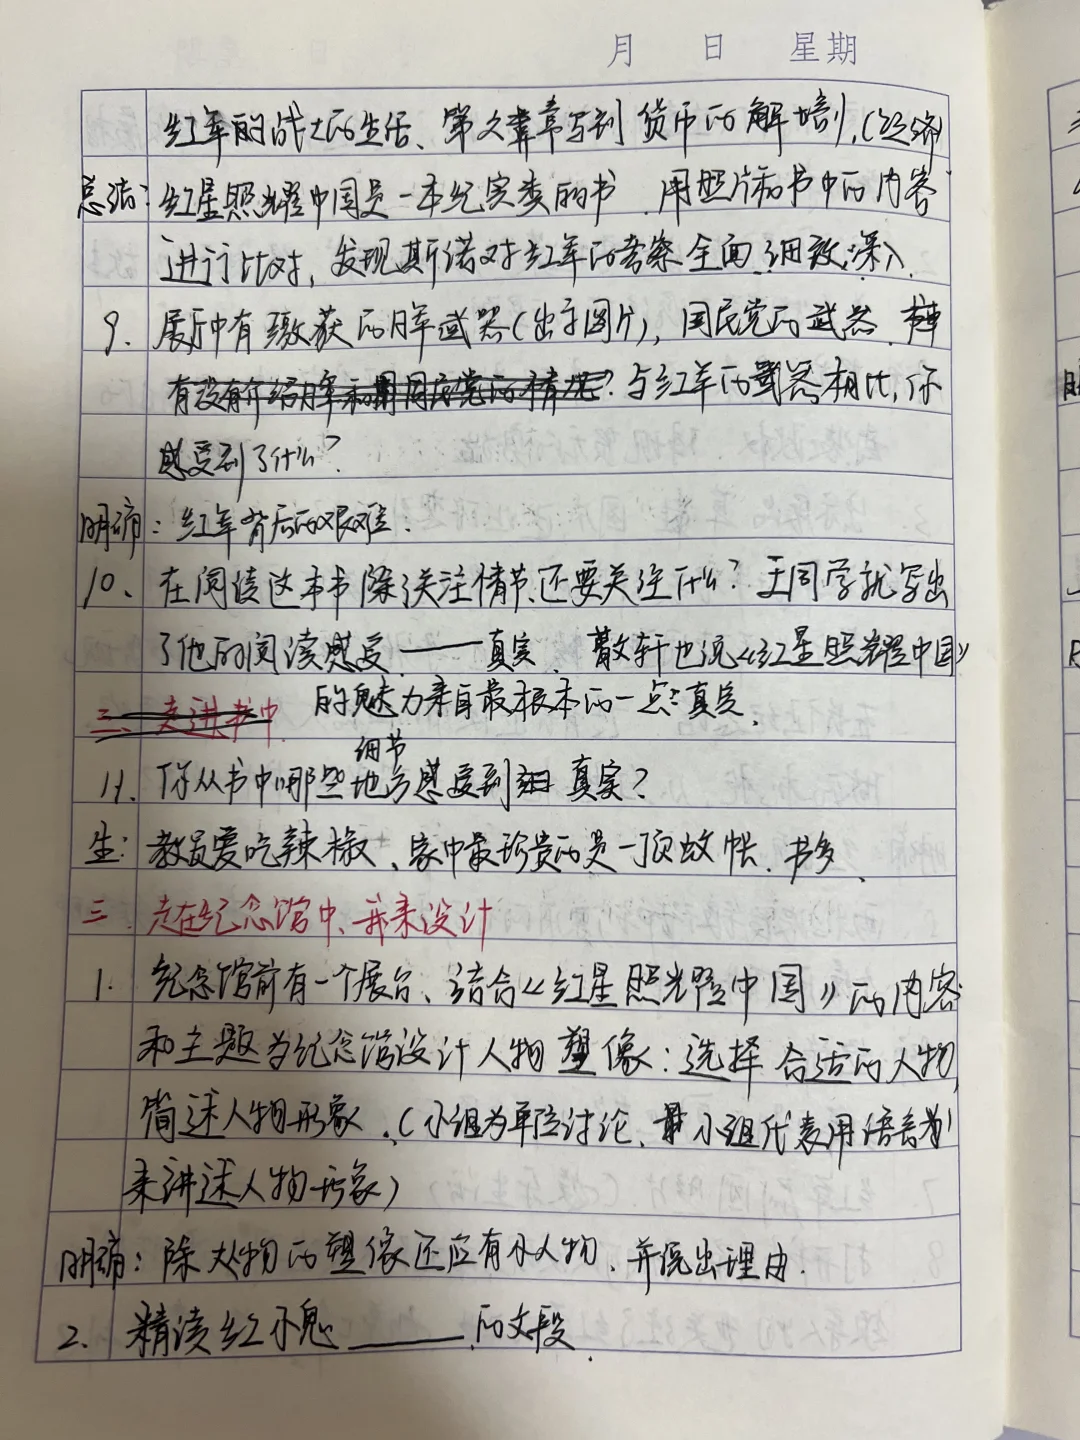 月 日 星期
红军的战士的生活、第久章写到货币的解释,(经济)
总结:红星照耀中国是一本纪实类的书.用照片和书中的内容
进行比对,发现斯诺对红军的考察全面.细致.深入.
9. 展厅中有缴获的日军武器(出示图片),国民党的武器.
有没有介绍日军和国民党的情况?与红军的武器相比,你
感受到了什么?
明确:红军背后的艰难.
10、在阅读这本书除了关注情节,还要关注什么?王同学就写出
了他的阅读感受——真实、散文轩也说《红星照耀中国》
二、走进书中. 的魅力来自最根本的一点:真实.
细节
11、你从书中哪些地方感受到 真实?
生:教员爱吃辣椒、家中最珍贵的是一顶蚊帐、书多、
三 走在纪念馆中、我来设计
1. 纪念馆前有一个展台、结合《红星照耀中国》的内容
和主题为纪念馆设计人物塑像:选择合适的人物,
简述人物形象.(小组为单位讨论、小组代表用语言
来讲述人物形象)
明确:除大人物的塑像还应有小人物、并说出理由.
2. 精读红小鬼______的文段.